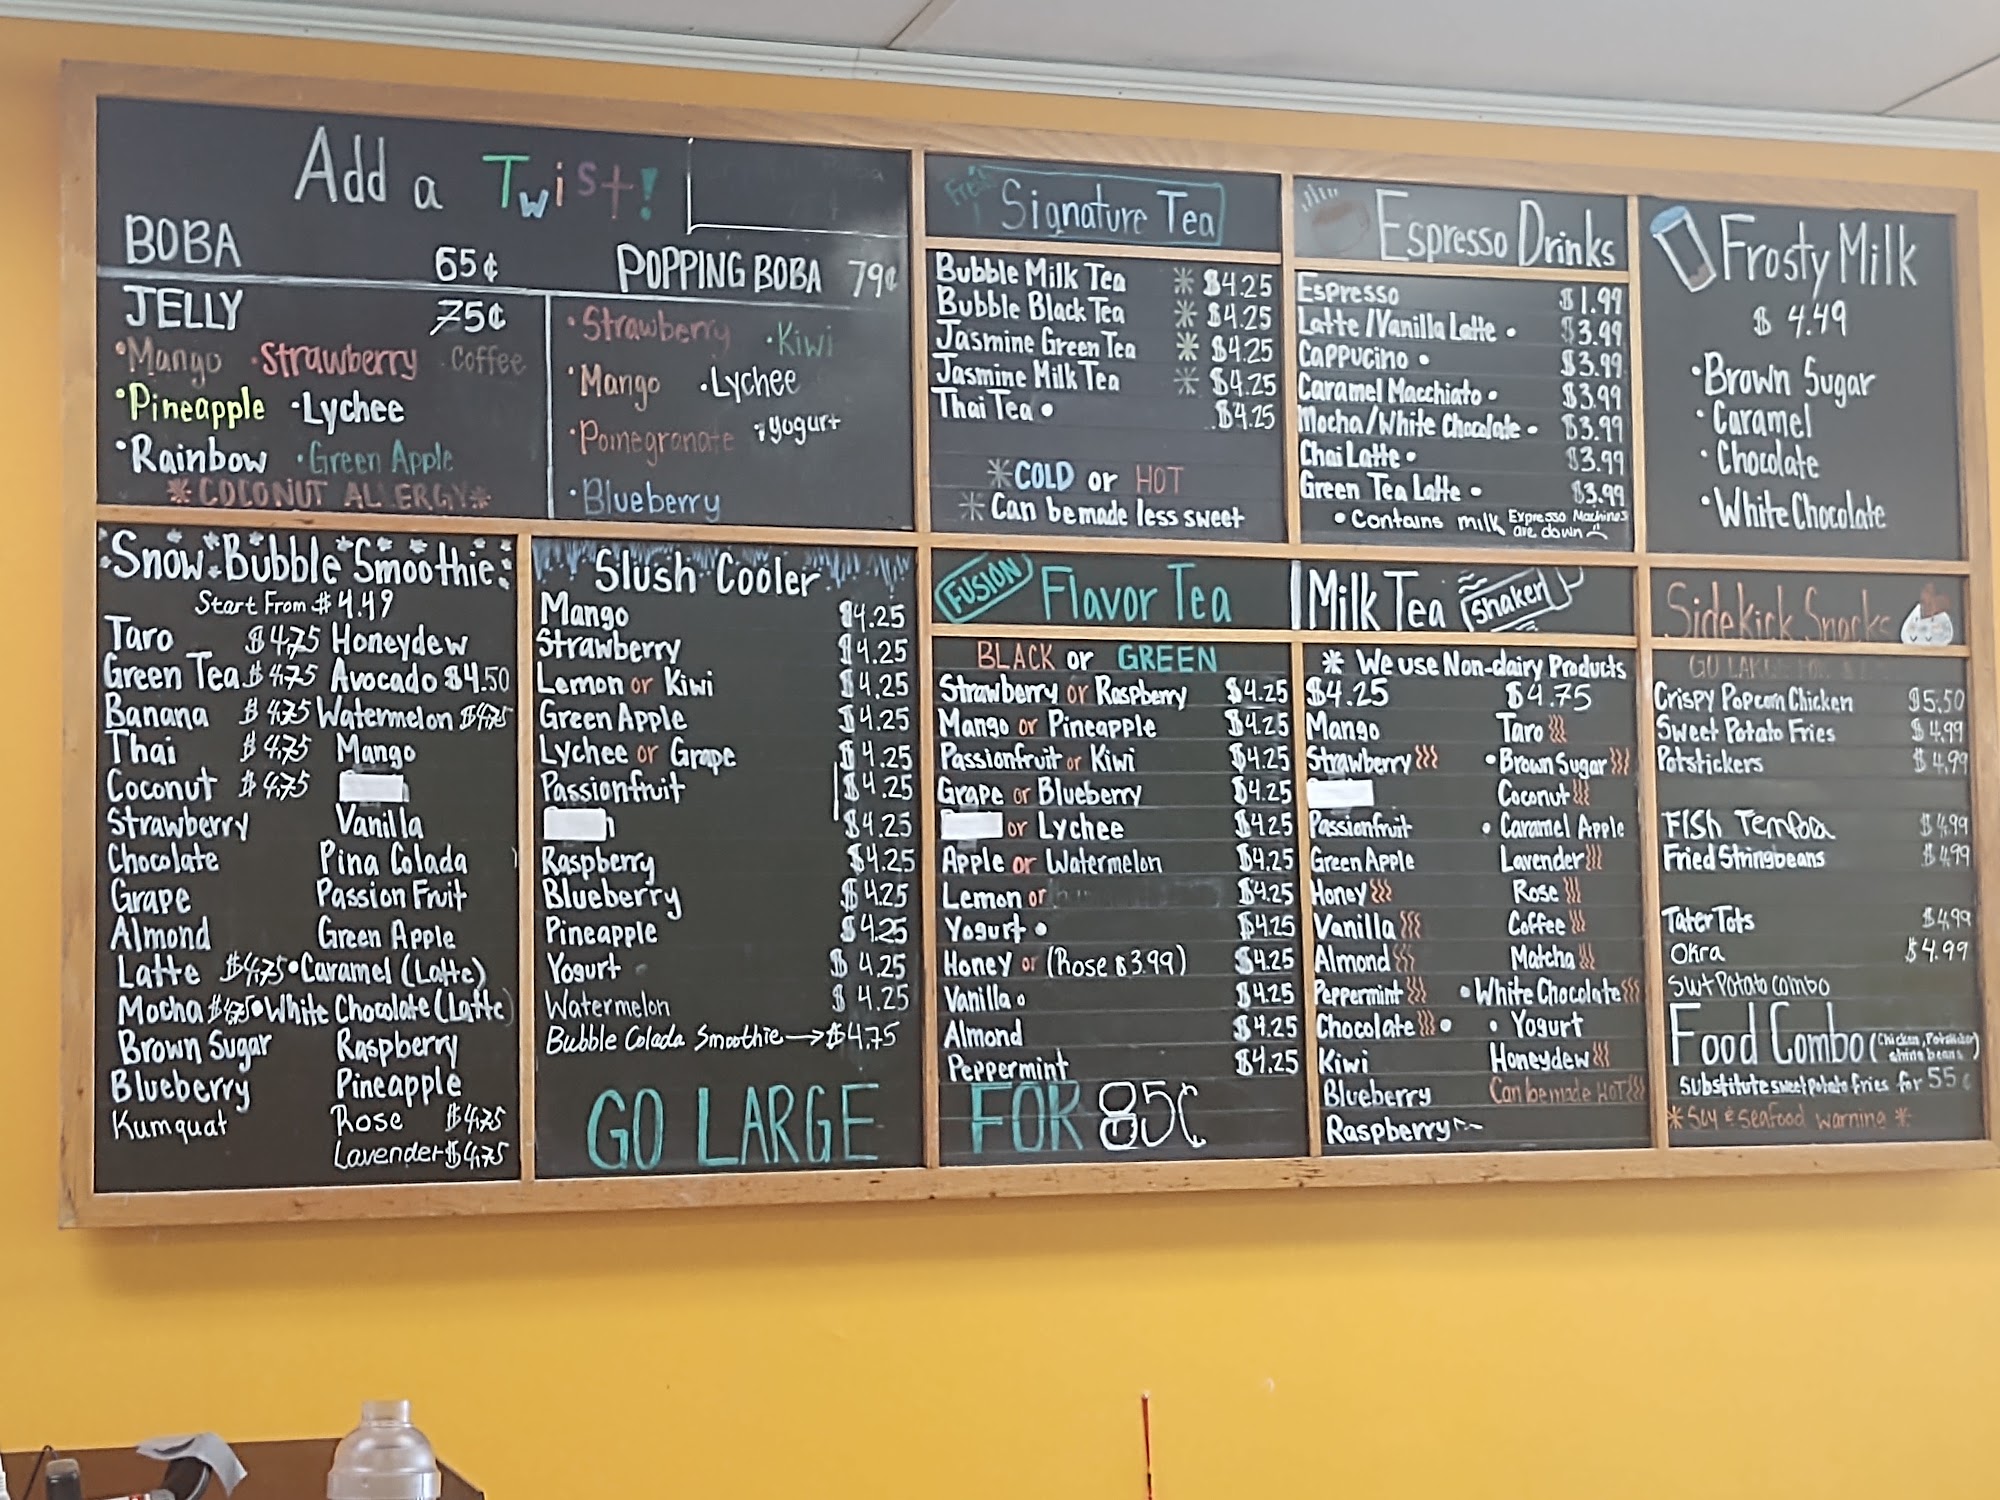 Add a Twist!
BOBA 65¢
POPPING BOBA 79¢
JELLY 75¢
•Mango •Strawberry •Coffee
•Pineapple •Lychee
•Rainbow •Green Apple
*COCONUT ALLERGY*
•Strawberry •Kiwi
•Mango •Lychee
•Pomegranate •yogurt
•Blueberry
Signature Tea
Bubble Milk Tea * $4.25
Bubble Black Tea * $4.25
Jasmine Green Tea * $4.25
Jasmine Milk Tea * $4.25
Thai Tea • $4.25
*COLD or HOT
*Can be made less sweet
Espresso Drinks
Espresso $1.99
Latte/Vanilla Latte • $3.99
Cappucino • $3.99
Caramel Macchiato • $3.99
Mocha/White Chocolate • $3.99
Chai Latte • $3.99
Green Tea Latte • $3.99
•Contains milk
Expresso Machines
are down
Frosty Milk
$4.49
•Brown Sugar
•Caramel
•Chocolate
•White Chocolate
Snow Bubble Smoothie
Start From $4.49
Taro $4.75 Honeydew
Green Tea $4.75 Avocado $4.50
Banana $4.75 Watermelon $4.75
Thai $4.75 Mango
Coconut $4.75
Strawberry Vanilla
Chocolate Pina Colada
Grape Passion Fruit
Almond Green Apple
Latte $4.75 •Caramel (Latte)
Mocha $4.75 •White Chocolate (Latte)
Brown Sugar Raspberry
Blueberry Pineapple
Kumquat Rose $4.75
Lavender $4.75
Slush Cooler
Mango $4.25
Strawberry $4.25
Lemon or Kiwi $4.25
Green Apple $4.25
Lychee or Grape $4.25
Passionfruit $4.25
$4.25
Raspberry $4.25
Blueberry $4.25
Pineapple $4.25
Yogurt $4.25
Watermelon $4.25
Bubble Colada Smoothie → $4.75
GO LARGE
FUSION Flavor Tea
BLACK or GREEN
Strawberry or Raspberry $4.25
Mango or Pineapple $4.25
Passionfruit or Kiwi $4.25
Grape or Blueberry $4.25
or Lychee $4.25
Apple or Watermelon $4.25
Lemon or $4.25
Yogurt • $4.25
Honey or (Rose $3.99) $4.25
Vanilla • $4.25
Almond $4.25
Peppermint $4.25
FOR 85¢
Milk Tea Shaken
* We use Non-dairy Products
$4.25 $4.75
Mango Taro
Strawberry •Brown Sugar
Coconut
Passionfruit •Caramel Apple
Green Apple Lavender
Honey Rose
Vanilla Coffee
Almond Matcha
Peppermint •White Chocolate
Chocolate • •Yogurt
Kiwi Honeydew
Blueberry Can be made HOT
Raspberry
Sidekick Snacks
Crispy Popcorn Chicken $5.50
Sweet Potato Fries $4.99
Potstickers $4.99
FISH TEMPORA $4.99
Fried Stringbeans $4.99
Tater Tots $4.99
Okra $4.99
Swt Potato combo
Food Combo (Chicken, Potsticker,
string beans)
Substitute sweet potato fries for 55¢
*Soy & Seafood warning*